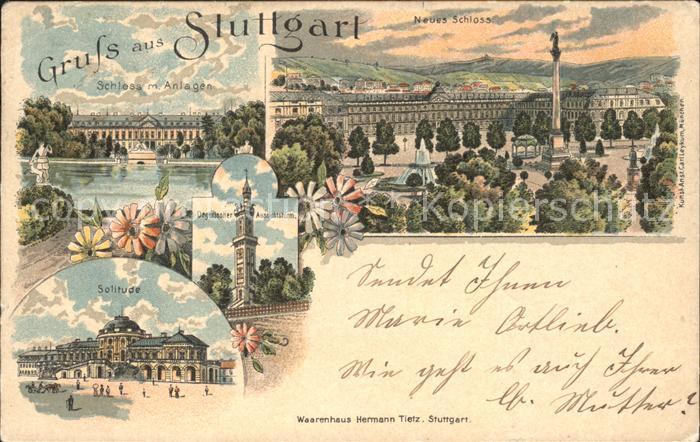 Gruss aus Stuttgart
Neues Schloss.
Schloss m. Anlagen
Aussichtsturm.
Solitude
Kunst-Anst. Carl Leykum, München.
Sendet Ihnen
Marie Ortlieb.
Wie geht es auch Ihrer
lb. Mutter?
Waarenhaus Hermann Tietz. Stuttgart.